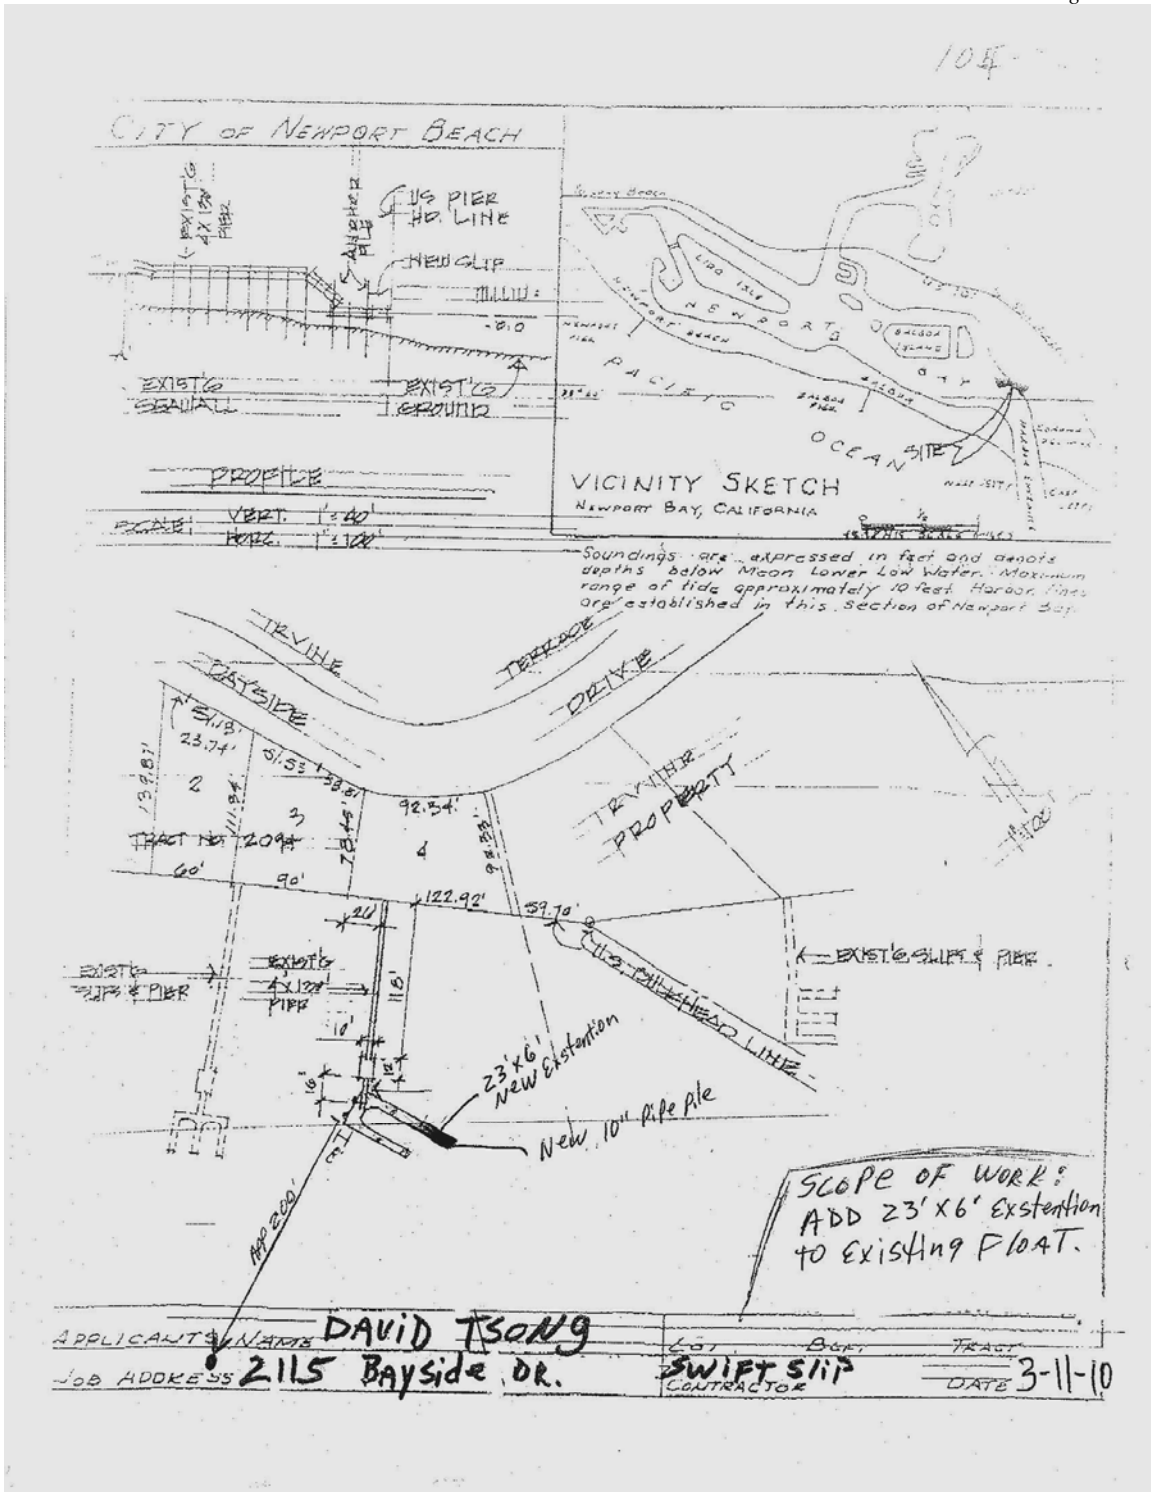 CITY OF NEWPORT BEACH
EXIST'G
4X138
PIER
ANCHOR
PILE
US PIER
HD. LINE
NEW SLIP
EXIST'G
SEAWALL
EXIST'G
GROUND
PROFILE
SCALE: VERT. 1"=40'
HORZ. 1"=100'
LIDO
ISLE
NEWPORT
BAY
BALBOA
ISLAND
NEWPORT BEACH
NEWPORT
PIER
PACIFIC
OCEAN
BALBOA
BALBOA
PIER
SITE
HARBOR ENTRANCE
CORONA
DEL MAR
WEST JETTY
EAST
JETTY
VICINITY SKETCH
NEWPORT BAY, CALIFORNIA
Soundings are expressed in feet and denote
depths below Mean Lower Low Water. Maximum
range of tide approximately 10 feet. Harbor lines
are established in this section of Newport Bay.
IRVINE
TERRACE
BAYSIDE
DRIVE
51.13'
23.74'
51.53'
38.81'
92.34'
139.87'
111.84'
78.45'
98.53'
2
3
4
TRACT NO. 2094
60'
90'
122.92'
59.70'
IRVINE
PROPERTY
1"=100'
26'
EXIST'G
SLIPS & PIER
EXIST'G
4'X138'
PIER
118'
EXIST'G SLIPS & PIER
U.S. BULKHEAD LINE
10'
12'
16'
23'X6'
New Exstention
New 10" Pipe pile
App 200'
SCOPE OF WORK:
ADD 23'X6' Exstention
to Existing FLOAT.
APPLICANT'S NAME DAVID TSONG
LOT BLK. TRACT
JOB ADDRESS 2115 Bayside DR.
SWIFT Slip
CONTRACTOR
DATE 3-11-10